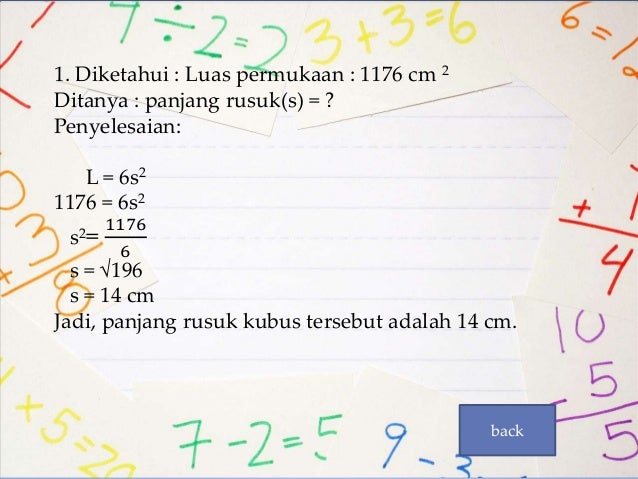 7 ÷ 2 = 2
3 + 3 = 6
6 =
1. Diketahui : Luas permukaan : 1176 cm ²
Ditanya : panjang rusuk(s) = ?
Penyelesaian:
L = 6s²
1176 = 6s²
s²= 1176/6
s = √196
s = 14 cm
Jadi, panjang rusuk kubus tersebut adalah 14 cm.
+ 1
4
10
- 5
5
3
+
8
+ 5 = 20
7 - 2 = 5
9 - 3
back